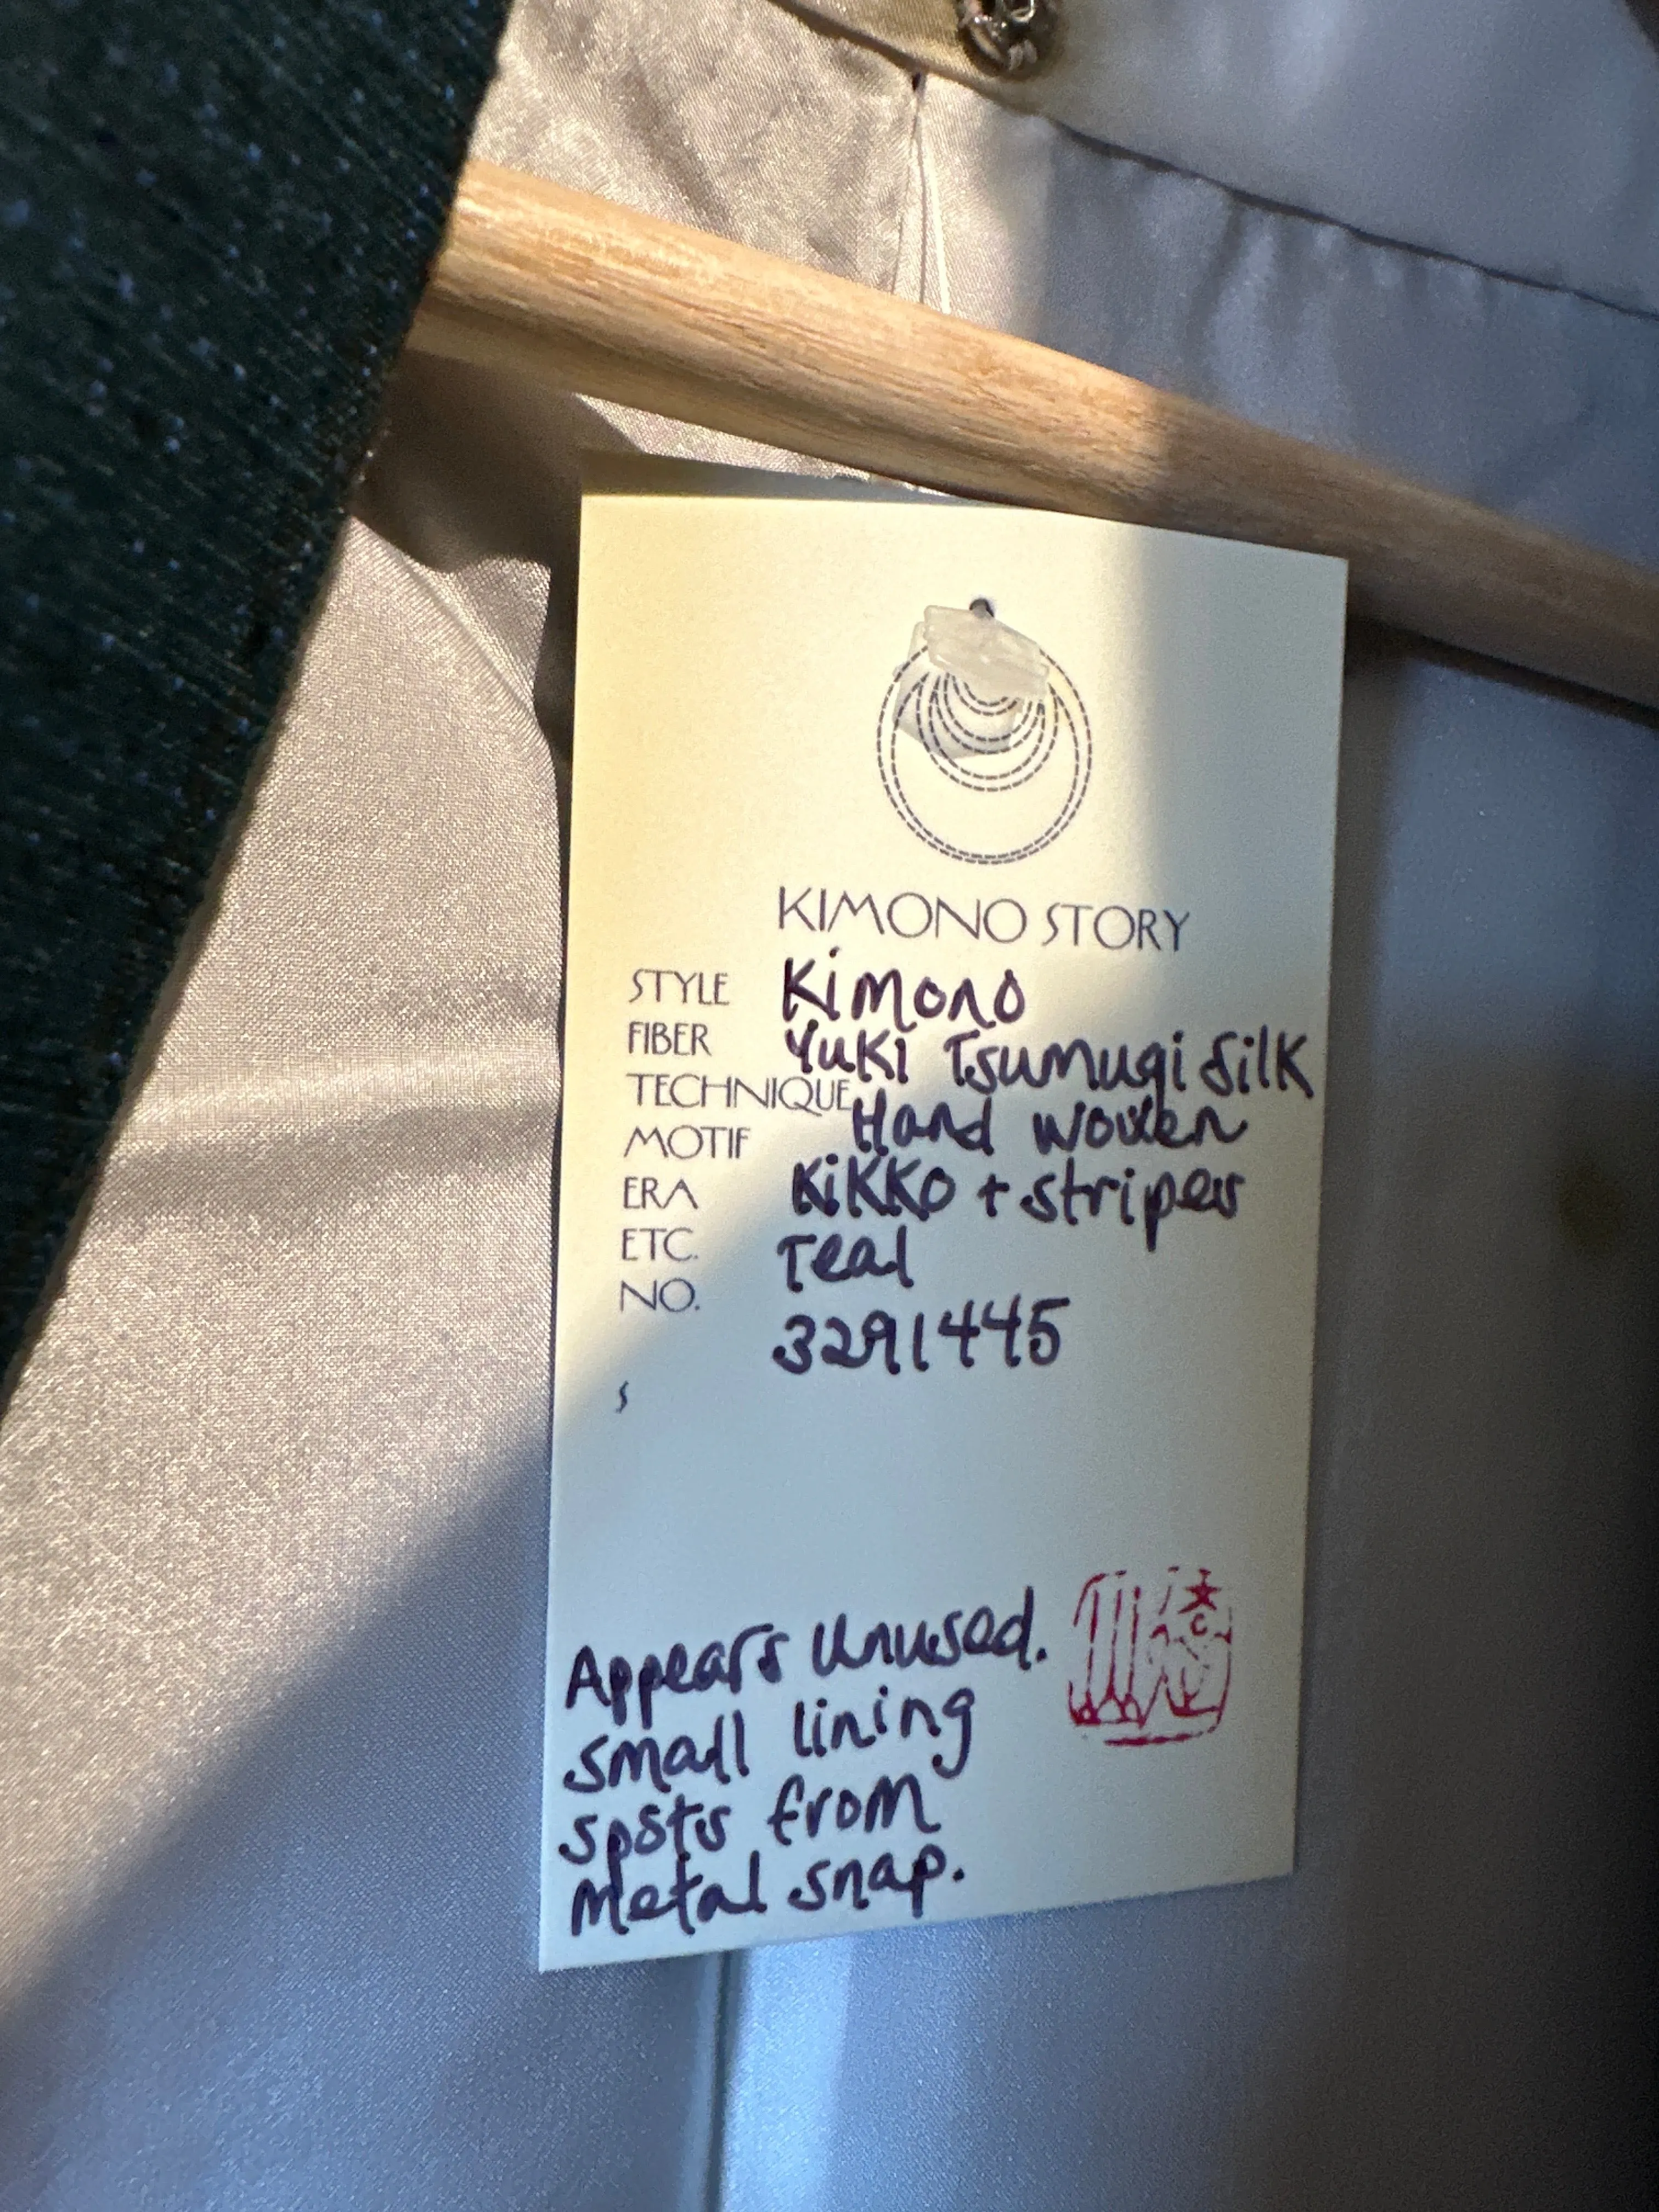 KIMONO STORY
STYLE Kimono
FIBER Yuki Tsumugi Silk
TECHNIQUE Hand woven
MOTIF Kikko + stripes
ERA
ETC. Teal
NO. 3291445
s
Appears Unused.
small lining
spots from
metal snap.